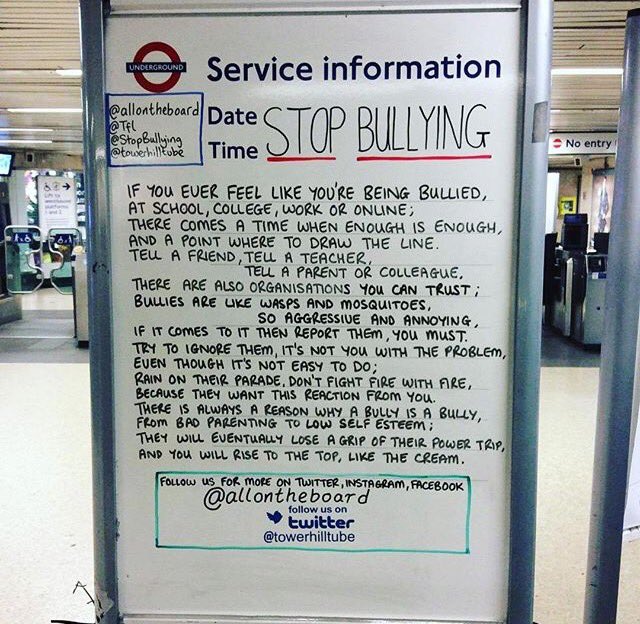 UNDERGROUND
Service information
@allontheboard
@Tfl
@StopBullying
@towerhilltube
Date
Time
STOP BULLYING
No entry
Lift to
westbound
platforms
1 and 2
IF YOU EVER FEEL LIKE YOU'RE BEING BULLIED,
AT SCHOOL, COLLEGE, WORK OR ONLINE;
THERE COMES A TIME WHEN ENOUGH IS ENOUGH,
AND A POINT WHERE TO DRAW THE LINE.
TELL A FRIEND, TELL A TEACHER,
TELL A PARENT OR COLLEAGUE,
THERE ARE ALSO ORGANISATIONS YOU CAN TRUST;
BULLIES ARE LIKE WASPS AND MOSQUITOES,
SO AGGRESSIVE AND ANNOYING,
IF IT COMES TO IT THEN REPORT THEM, YOU MUST.
TRY TO IGNORE THEM, IT'S NOT YOU WITH THE PROBLEM,
EVEN THOUGH IT'S NOT EASY TO DO;
RAIN ON THEIR PARADE, DON'T FIGHT FIRE WITH FIRE,
BECAUSE THEY WANT THIS REACTION FROM YOU.
THERE IS ALWAYS A REASON WHY A BULLY IS A BULLY,
FROM BAD PARENTING TO LOW SELF ESTEEM;
THEY WILL EVENTUALLY LOSE A GRIP OF THEIR POWER TRIP,
AND YOU WILL RISE TO THE TOP, LIKE THE CREAM.
FOLLOW US FOR MORE ON TWITTER, INSTAGRAM, FACEBOOK
@allontheboard
follow us on
twitter
@towerhilltube